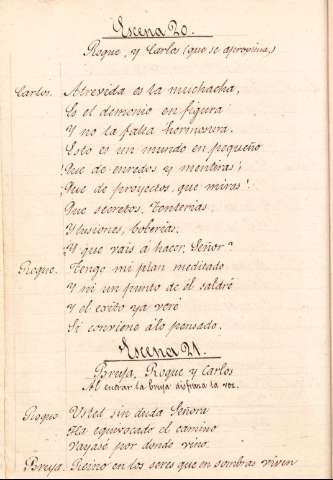 Escena 20.
Roque, y Carlos (que se aproxima)
Carlos. Atrevida es la muchacha,
Es el demonio en figura
Y no la falta hermosura.
Esto es un mundo en pequeño
¡Que de enredos y mentiras;
¡Que de proyectos, que miras!
Que secretos, Tonterias.
Ylusiones, boberias.
¿Y que vais á hacer, Señor?
Roque. Tengo mi plan meditado
Y ni un punto de el saldré
Y el exito ya veré
Si conviene á lo pensado.
Escena 21.
Bruja, Roque y Carlos
Al entrar la bruja disfraza la voz.
Roque Usted sin duda Señora
Ha equivocado el camino
Vayasé por donde vino.
Bruja. Reino en los seres que en sombras viven